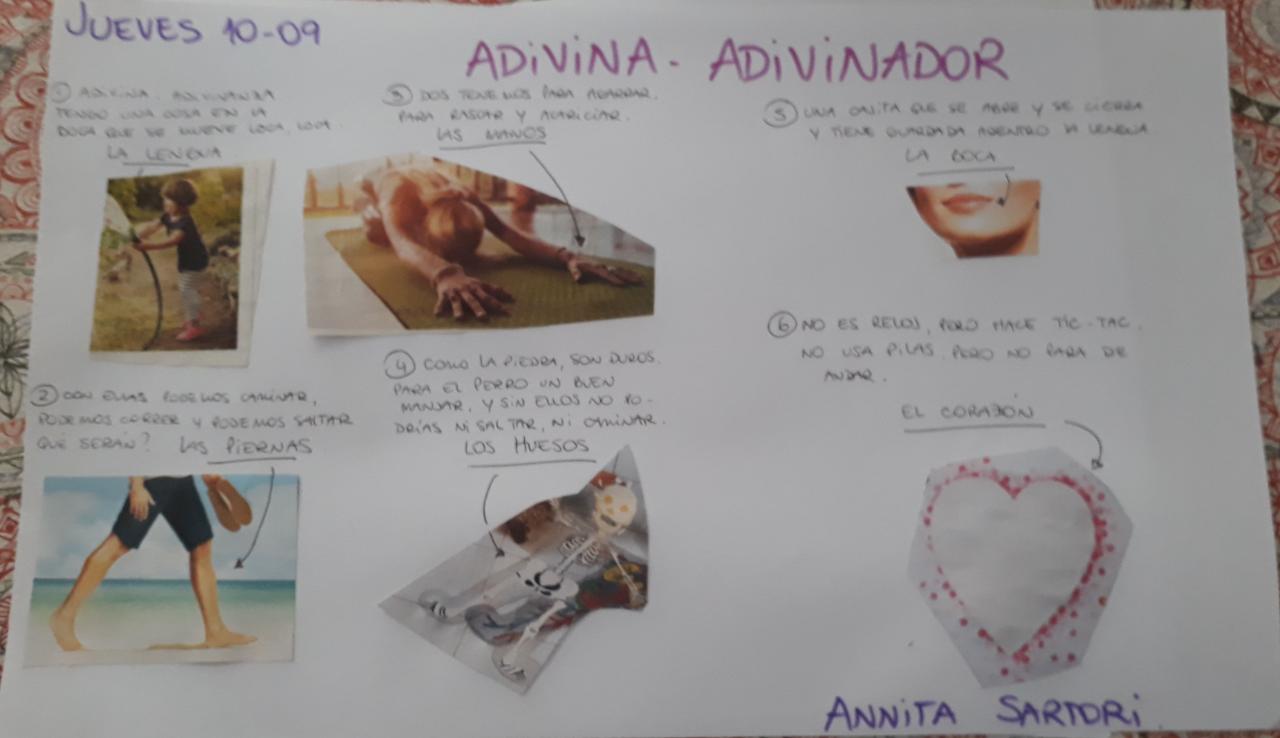 JUEVES 10-09
ADIVINA - ADIVINADOR
① ADIVINA, ADIVINANZA
TENGO UNA COSA EN LA
BOCA QUE SE MUEVE LOCA, LOCA.
LA LENGUA
② CON ELLAS PODEMOS CAMINAR,
PODEMOS CORRER Y PODEMOS SALTAR
QUÉ SERÁN? LAS PIERNAS
③ DOS TENEMOS PARA AGARRAR,
PARA RASCAR Y ACARICIAR.
LAS MANOS
④ COMO LA PIEDRA, SON DUROS.
PARA EL PERRO UN BUEN
MANJAR, Y SIN ELLOS NO PO-
DRÍAS NI SALTAR, NI CAMINAR.
LOS HUESOS
⑤ UNA CAJITA QUE SE ABRE Y SE CIERRA
Y TIENE GUARDADA ADENTRO LA LENGUA.
LA BOCA
⑥ NO ES RELOJ, PERO HACE TIC-TAC.
NO USA PILAS, PERO NO PARA DE
ANDAR.
EL CORAZÓN
ANNITA SARTORI